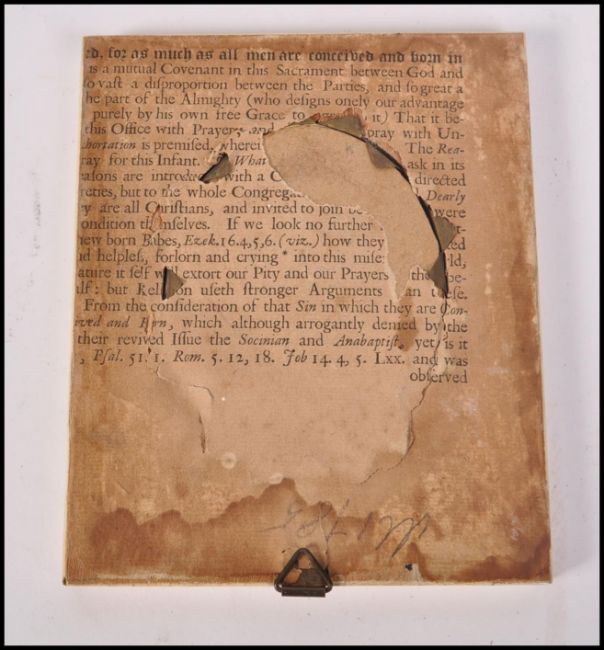 rd, for as much as all men are conceived and born in
is a mutual Covenant in this Sacrament between God and
ſo vaſt a diſproportion between the Parties, and ſo great a
he part of the Almighty (who deſigns onely our advantage
purely by his own free Grace to it) That it be-
this Office with Prayer and pray with Un-
hortation is premiſed, wherei The Rea-
ray for this Infant. What ask in its
aſons are introduc with a C directed
reties, but to the whole Congrega Dearly
ry are all Chriſtians, and invited to join be were
ondition themſelves. If we look no further
new born Babes, Ezek. 16.4,5,6. (viz.) how they ed
nd helpleſs, forlorn and crying * into this miſe rld,
ature it ſelf will extort our Pity and our Prayers the be-
lf: but Religion uſeth ſtronger Arguments an theſe.
From the conſideration of that Sin in which they are Con-
ved and Born, which although arrogantly denied by the
their revived Iſſue the Socinian and Anabaptiſt, yet is it
, Pſal. 51. 1. Rom. 5. 12, 18. Job 14. 4, 5. Lxx. and was
obſerved